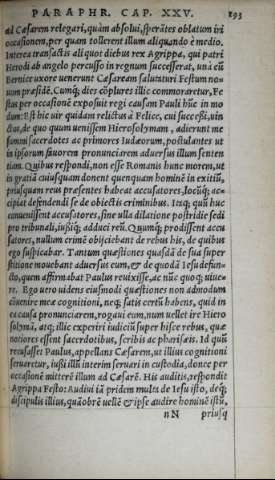 PARAPHR. CAP. XXV. 193
ad Cæsarem relegari, quàm absolui, sperãtes oblatum iri
occasionem, per quam tollerent illum aliquando è medio.
Interea transactis aliquot diebus rex Agrippa, qui patri
Herodi ab angelo percusso in regnum successerat, unà cũ
Bernice uxore uenerunt Cæsaream salutaturi Festum no-
uum præsidẽ. Cumq́; dies cõplures illic commoraretur, Fe
stus per occasionẽ exposuit regi causam Pauli hũc in mo
dum: Est hic uir quidam relictus à Felice, cui successi, uin
ctus, de quo quum uenissem Hierosolymam, adierunt me
summi sacerdotes ac primores Iudæorum, postulantes ut
in ipsorum fauorem pronunciarem aduersus illum senten
tiam. Quibus respondi, non esse Romanis hunc morem, ut
in gratiã cuiusquam donent quenquam hominẽ in exitiũ,
priusquam reus præsentes habeat accusatores, locũq́; ac-
cipiat defendendi se de obiectis criminibus. Itaq; quũ huc
conuenissent accusatores, sine ulla dilatione postridie sedi
pro tribunali, iussiq́; adduci reũ. Quumq́; prodissent accu
satores, nullum crimẽ obijciebant de rebus his, de quibus
ego suspicabar. Tantum quæstiones quasdã de sua super
stitione mouebant aduersus eum, & de quodã Iesu defun-
cto, quem affirmabat Paulus reuixisse, ac nũc quoq; uiue-
re. Ego uero uidens eiusmodi quæstiones non admodum
cõuenire meæ cognitioni, neq; satis certũ habens, quid in
ea causa pronunciarem, rogaui eum, num uellet ire Hiero
solymã, atq; illic experiri iudiciũ super hisce rebus, quæ
notiores essent sacerdotibus, scribis ac pharisæis. Id quũ
recusasset Paulus, appellans Cæsarem, ut illius cognitioni
seruaretur, iussi illũ interim seruari in custodia, donec per
occasionẽ mitterẽ illum ad Cæsarẽ. His auditis, respondit
Agrippa Festo: Audiui iã pridem multa de Iesu isto, deq́;
discipulis illius, quãobrẽ uellẽ & ipse audire hominẽ istũ,
n N priusq